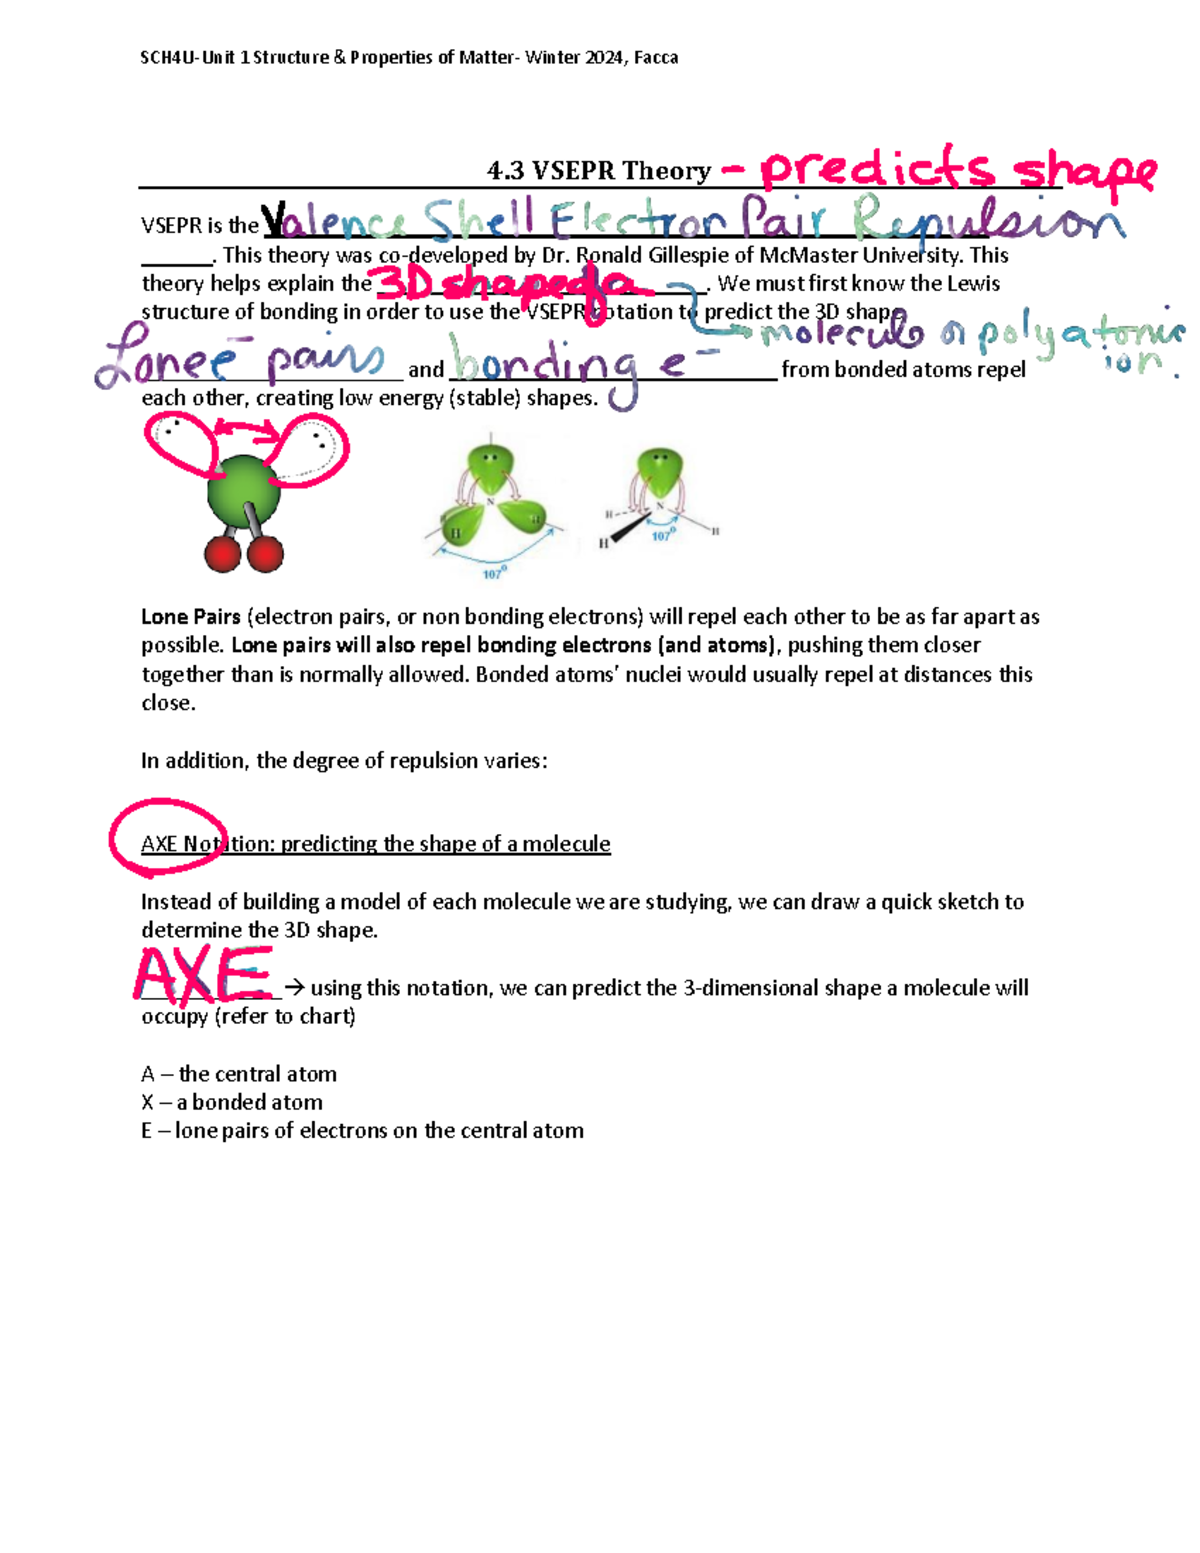 SCH4U-Unit 1 Structure & Properties of Matter- Winter 2024, Facca
4.3 VSEPR Theory – predicts shape
VSEPR is the Valence Shell Electron Pair Repulsion
______. This theory was co-developed by Dr. Ronald Gillespie of McMaster University. This
theory helps explain the 3D shape of a. We must first know the Lewis
structure of bonding in order to use the VSEPR notation to predict the 3D shape
molecule or polyatomic
ion.
Lone e⁻ pairs and bonding e⁻ from bonded atoms repel
each other, creating low energy (stable) shapes.
N
H
H
107°
N
H
H
H
107°
Lone Pairs (electron pairs, or non bonding electrons) will repel each other to be as far apart as
possible. Lone pairs will also repel bonding electrons (and atoms), pushing them closer
together than is normally allowed. Bonded atoms' nuclei would usually repel at distances this
close.
In addition, the degree of repulsion varies:
AXE Notation: predicting the shape of a molecule
Instead of building a model of each molecule we are studying, we can draw a quick sketch to
determine the 3D shape.
AXE → using this notation, we can predict the 3-dimensional shape a molecule will
occupy (refer to chart)
A – the central atom
X – a bonded atom
E – lone pairs of electrons on the central atom